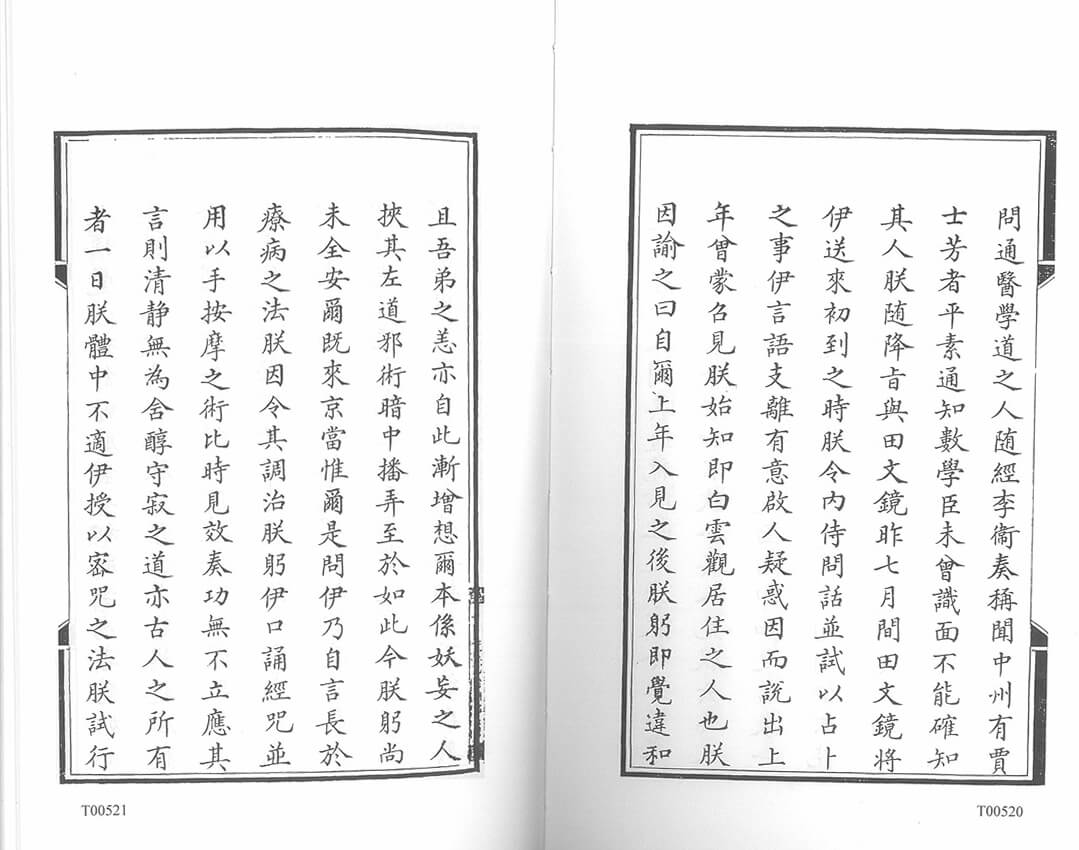 問通醫學道之人随經李衞奏稱聞中州有賈
士芳者平素通知數學臣未曾識面不能確知
其人朕随降旨與田文鏡昨七月間田文鏡將
伊送來初到之時朕令內侍問話並試以占卜
之事伊言語支離有意啟人疑惑因而說出上
年曾蒙召見朕始知即白雲觀居住之人也朕
因諭之曰自爾上年入見之後朕躬即覺違和
T00520
且吾弟之恙亦自此漸增想爾本係妖妄之人
挾其左道邪術暗中播弄至於如此今朕躬尚
未全安爾既來京當惟爾是問伊乃自言長於
療病之法朕因令其調治朕躬伊口誦經咒並
用以手按摩之術比時見效奏功無不立應其
言則清静無為舍醇守寂之道亦古人之所有
者一日朕體中不適伊授以密咒之法朕試行
T00521